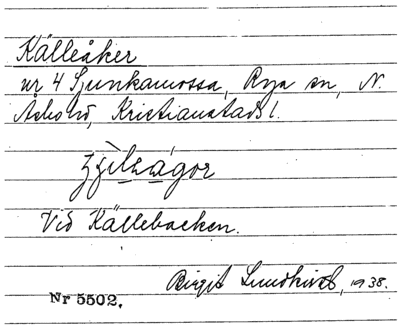 Källeåker
nr 4 Ljunkamossa, Rya sn, N.
Åsbo hd, Kristianstads l.
Vid Källebacken.
Birgit Lundkvist, 1938.
Nr 5502.